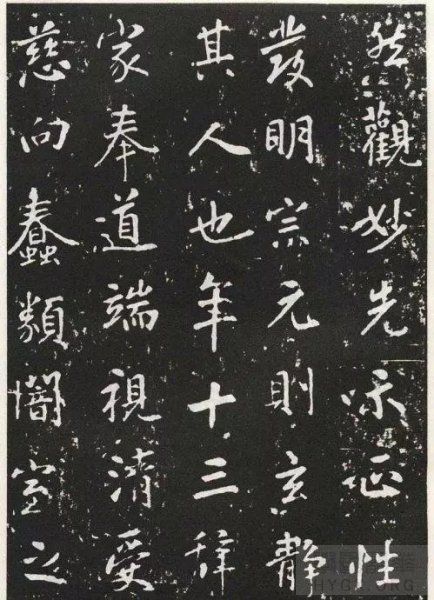 然觀妙先正性
發明宗元則玄靜
其人也年十三辞
家奉道端視清受
慈向蠢類闇室之